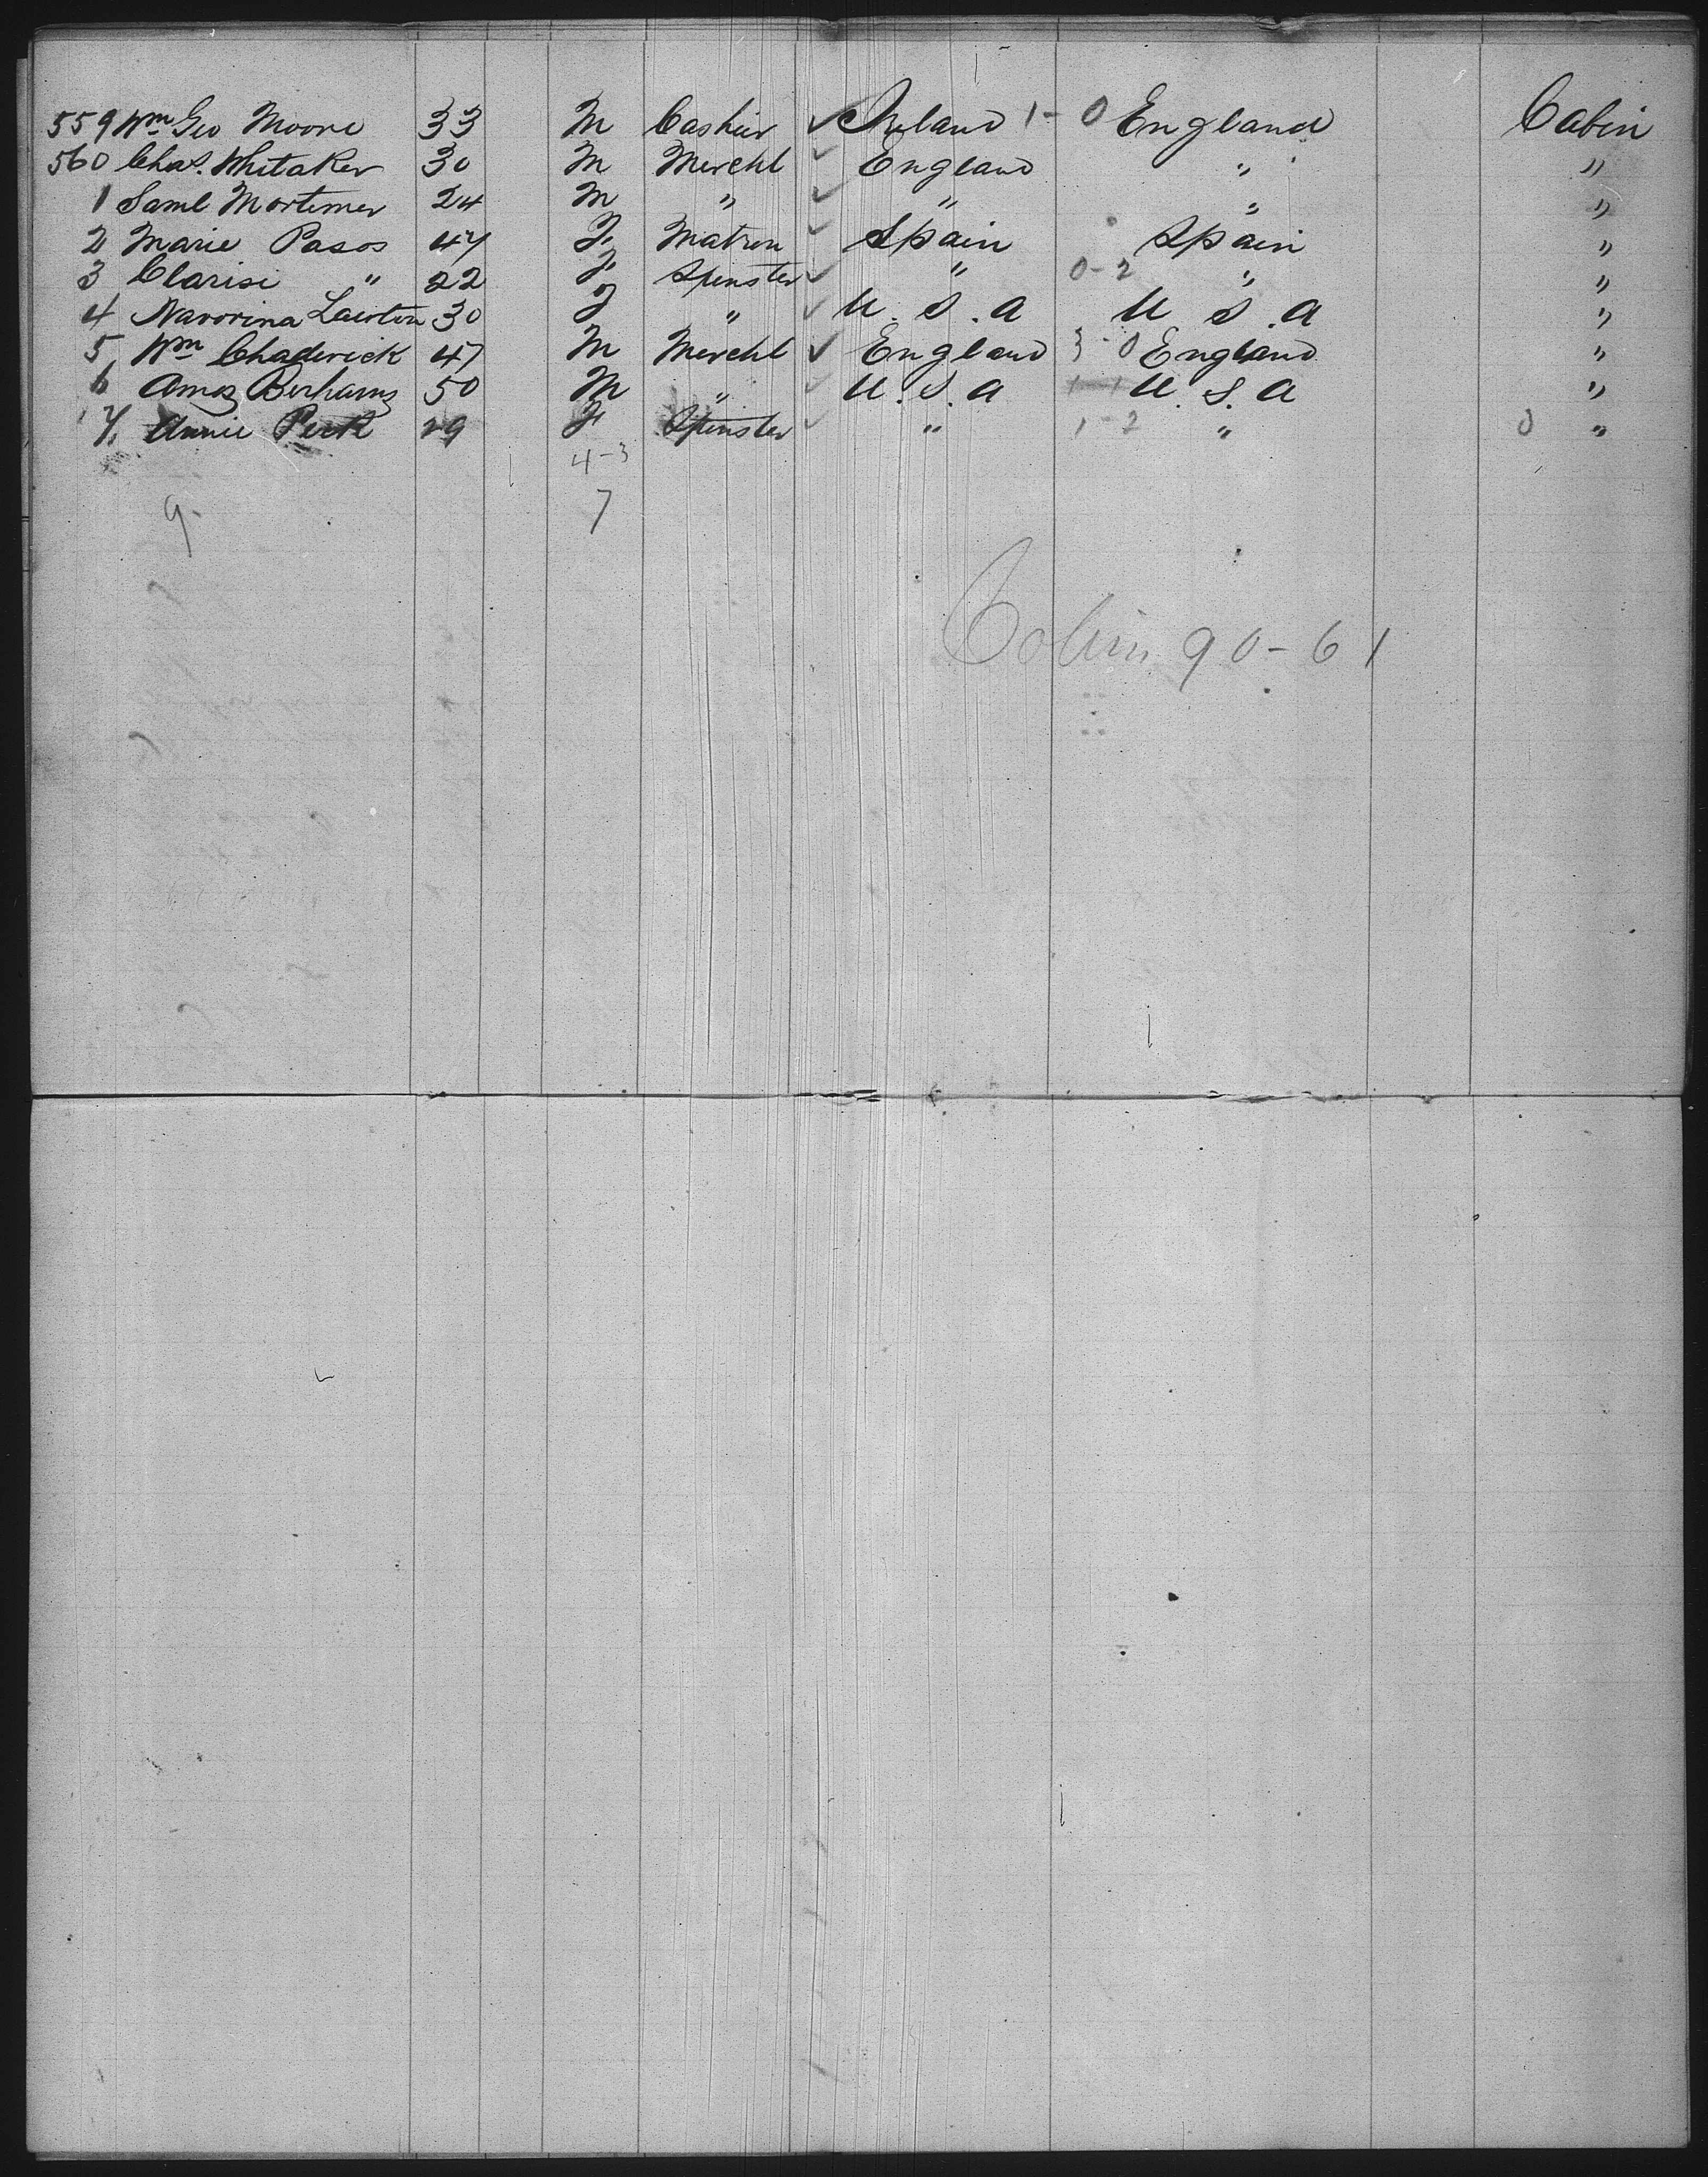 559 Wm Geo Moore 33 M Cashier ✓ Ireland 1-0 England Cabin
560 Chas. Whitaker 30 M Mercht ✓ England " "
1 Saml Mortimer 24 M " ✓ " " "
2 Marie Pasos 47 F. Matron ✓ Spain Spain "
3 Clarisi " 22 F. Spinster ✓ " 0-2 " "
4 30 F " ✓ U.S.A U S.A "
5, Wm Chadwick 47 M Mercht ✓ England 3-0 England "
6 Amos 50 M " ✓ U.S.A 1-1 U.S.A "
7. Annie 29 F Spinster ✓ " 1-2 " "
4-3
9- 7
Cabin 90-61